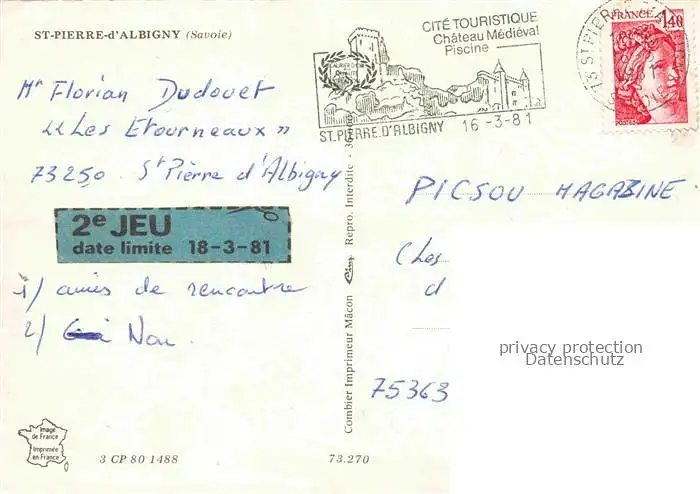 ST-PIERRE-d'ALBIGNY (Savoie)
CITÉ TOURISTIQUE
Château Médiéval
Piscine
ST.PIERRE.D'ALBIGNY 16-3-81
FRANCE
1,40
POSTES
Mr Florian Dudouet
"Les Etourneaux"
73250 St Pierre d'Albigny
2e JEU
date limite 18-3-81
1/ amis de rencontre
2/ Non.
PICSOU MAGAZINE
(Les
d
75363
privacy protection
Datenschutz
Combier Imprimeur Mâcon
Repro. Interdite
Image
de France
Imprimée
en France
3 CP 80 1488
73.270